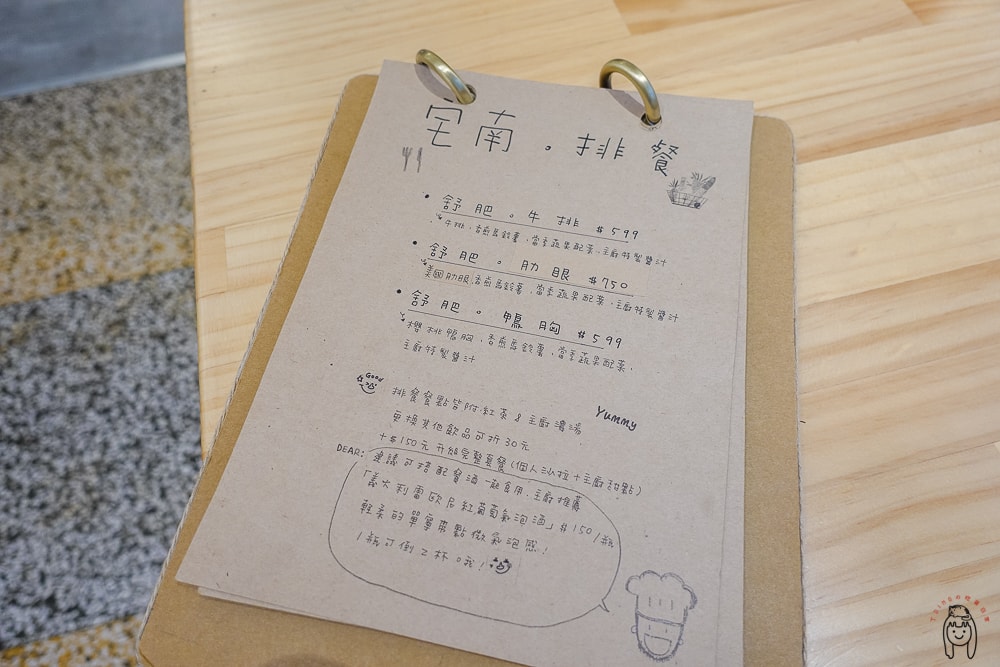 宅南。排餐
• 舒肥。牛排 $599
牛排、香煎馬鈴薯、當季蔬果配菜、主廚特製醬汁
• 舒肥。肋眼 $750
美國肋眼、香煎馬鈴薯、當季蔬果配菜、主廚特製醬汁
• 舒肥。鴨胸 $599
櫻桃鴨胸、香煎馬鈴薯、當季蔬果配菜、
主廚特製醬汁
Good
排餐餐點皆附紅茶&主廚濃湯
Yummy
更換其他飲品可折30元
+$150元 升級完整套餐(個人沙拉+主廚甜點)
DEAR: 建議可搭配餐酒一起食用,主廚推薦
「義大利雷歐尼紅葡萄氣泡酒」$150/瓶
輕柔的單寧帶點微氣泡感!
1瓶可倒2杯哦!